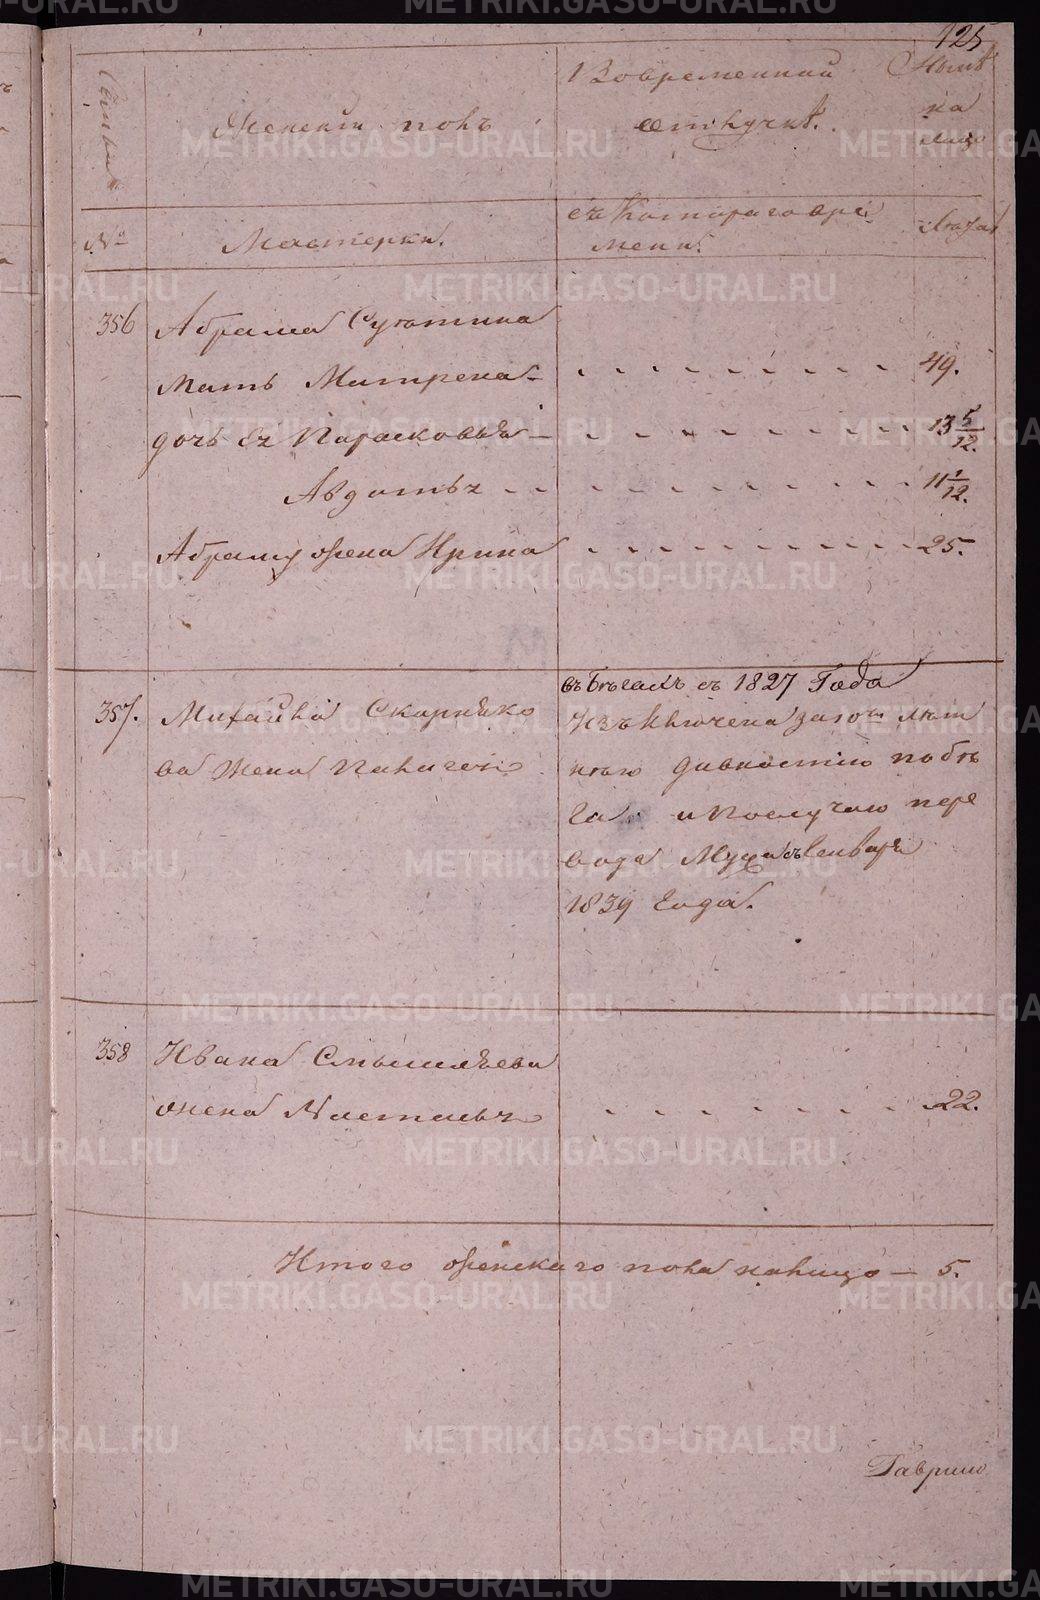 125
Семьи
Женскій полъ
Вовременной
отлучкѣ.
Нынѣ
на
лицо
№
Мастерки.
съ Котораго вре
мени.
лѣта
356
Абрама Сугатина
Мать Матрена
49.
дочь Ея Парасковья
13 5/12.
Авдотья
11 1/12.
Абраму жена Ирина
25.
357.
Михайла Скорняко
ва жена Палагея
въ бѣгахъ съ 1827 Года
Изъключена за 10ти лѣт
нею давностію побѣ
га и послучаю пере
вода Мужа съ Генваря
1839 Года.
358
Ивана Смышляева
жена Настасья
22.
Итого женскаго пола налицо — 5.
Гаврило
METRIKI.GASO-URAL.RU